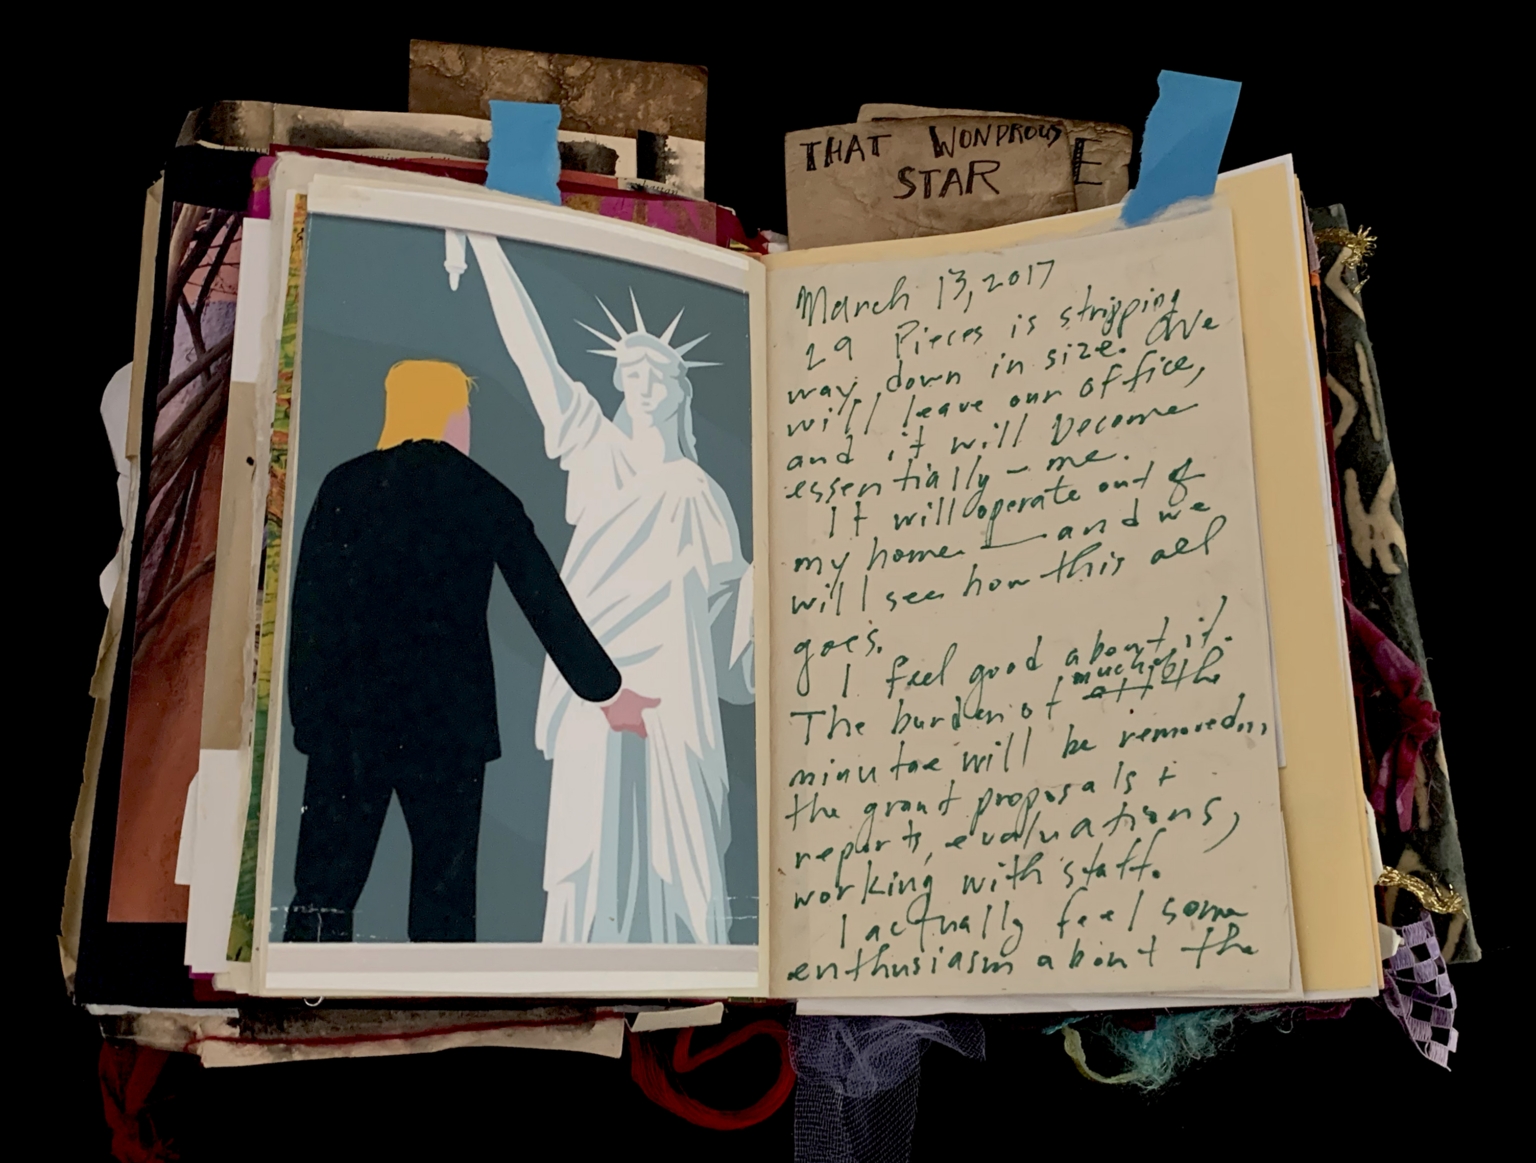 THAT WONDROUS
STAR
E
March 13, 2017
29 Pieces is stripping
way down in size. We
will leave our office,
and it will become
essentially – me.
It will operate out of
my home — and we
will see how this all
goes.
I feel good about it.
much of
The burden of all the
minutae will be removed,
the grant proposals +
reports, evaluations,
working with staff.
I actually feel some
enthusiasm about the